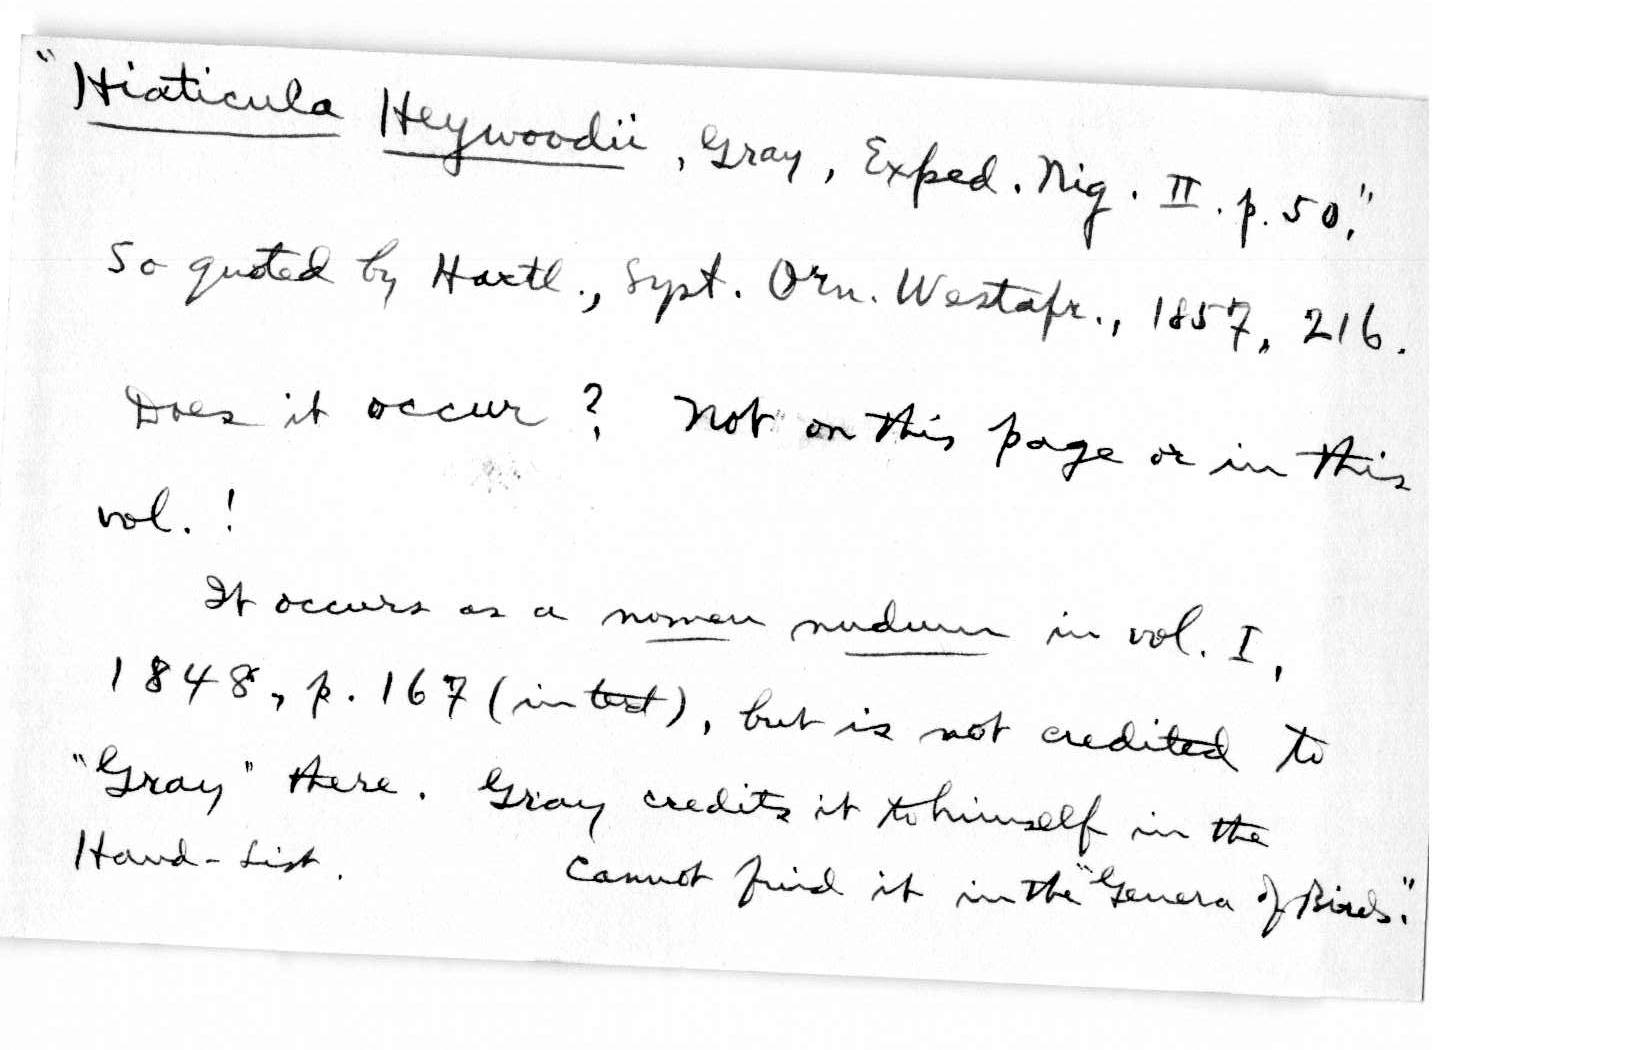 "Hiaticula Heywoodii, Gray, Exped. Nig. II. p. 50."
So quoted by Hartl., Syst. Orn. Westafr., 1857, 216.
Does it occur? Not on this page or in this
vol.!
It occurs as a nomen nudum in vol. I,
1848, p. 167 (in text), but is not credited to
"Gray" there. Gray credits it to himself in the
Hand-List. Cannot find it in the "Genera of Birds."